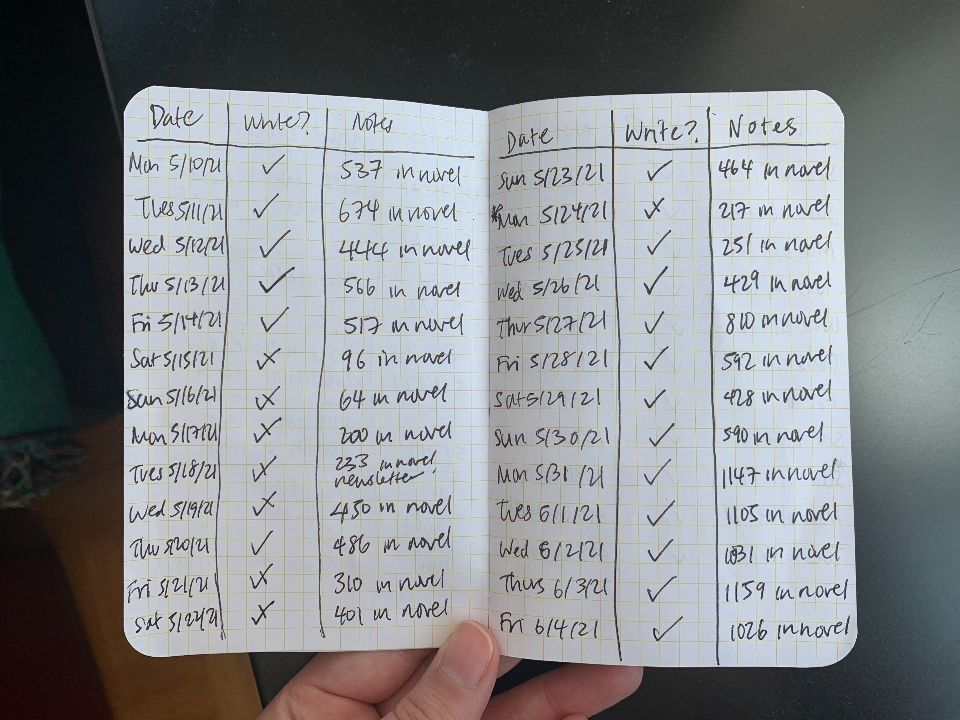 Date Write? Notes
Mon 5/10/21 ✓ 537 in novel
Tues 5/11/21 ✓ 674 in novel
Wed 5/12/21 ✓ 444 in novel
Thu 5/13/21 ✓ 566 in novel
Fri 5/14/21 ✓ 517 in novel
Sat 5/15/21 ✗ 96 in novel
Sun 5/16/21 ✗ 64 in novel
Mon 5/17/21 ✗ 200 in novel
Tues 5/18/21 ✗ 233 in novel,
newsletter
Wed 5/19/21 ✗ 430 in novel
Thu 5/20/21 ✓ 486 in novel
Fri 5/21/21 ✗ 310 in novel
Sat 5/22/21 ✗ 401 in novel
Date Write? Notes
Sun 5/23/21 ✓ 464 in novel
*Mon 5/24/21 ✗ 217 in novel
Tues 5/25/21 ✓ 251 in novel
Wed 5/26/21 ✓ 429 in novel
Thur 5/27/21 ✓ 810 in novel
Fri 5/28/21 ✓ 592 in novel
Sat 5/29/21 ✓ 428 in novel
Sun 5/30/21 ✓ 590 in novel
Mon 5/31/21 ✓ 1147 in novel
Tues 6/1/21 ✓ 1105 in novel
Wed 6/2/21 ✓ in novel
Thurs 6/3/21 ✓ 1159 in novel
Fri 6/4/21 ✓ 1026 in novel